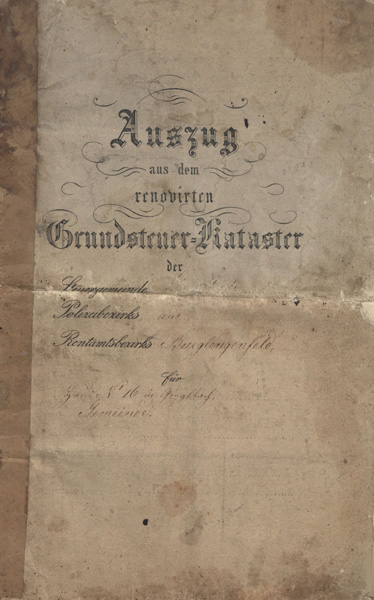 Auszug
aus dem
renovirten
Grundsteuer-Kataster
der
Steuergemeinde
Polizeibezirks
Rentamtsbezirks Burglengenfeld,
für
Haus N° 16 in
Gemeinde.